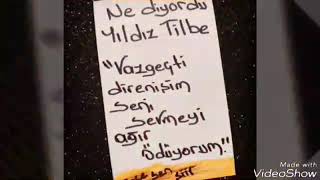 Ne diyordu
Yıldız Tilbe
"Vazgeçti
direnişim
seni
sevmeyi
ağır
ödüyorum!"
Made with
VideoShow